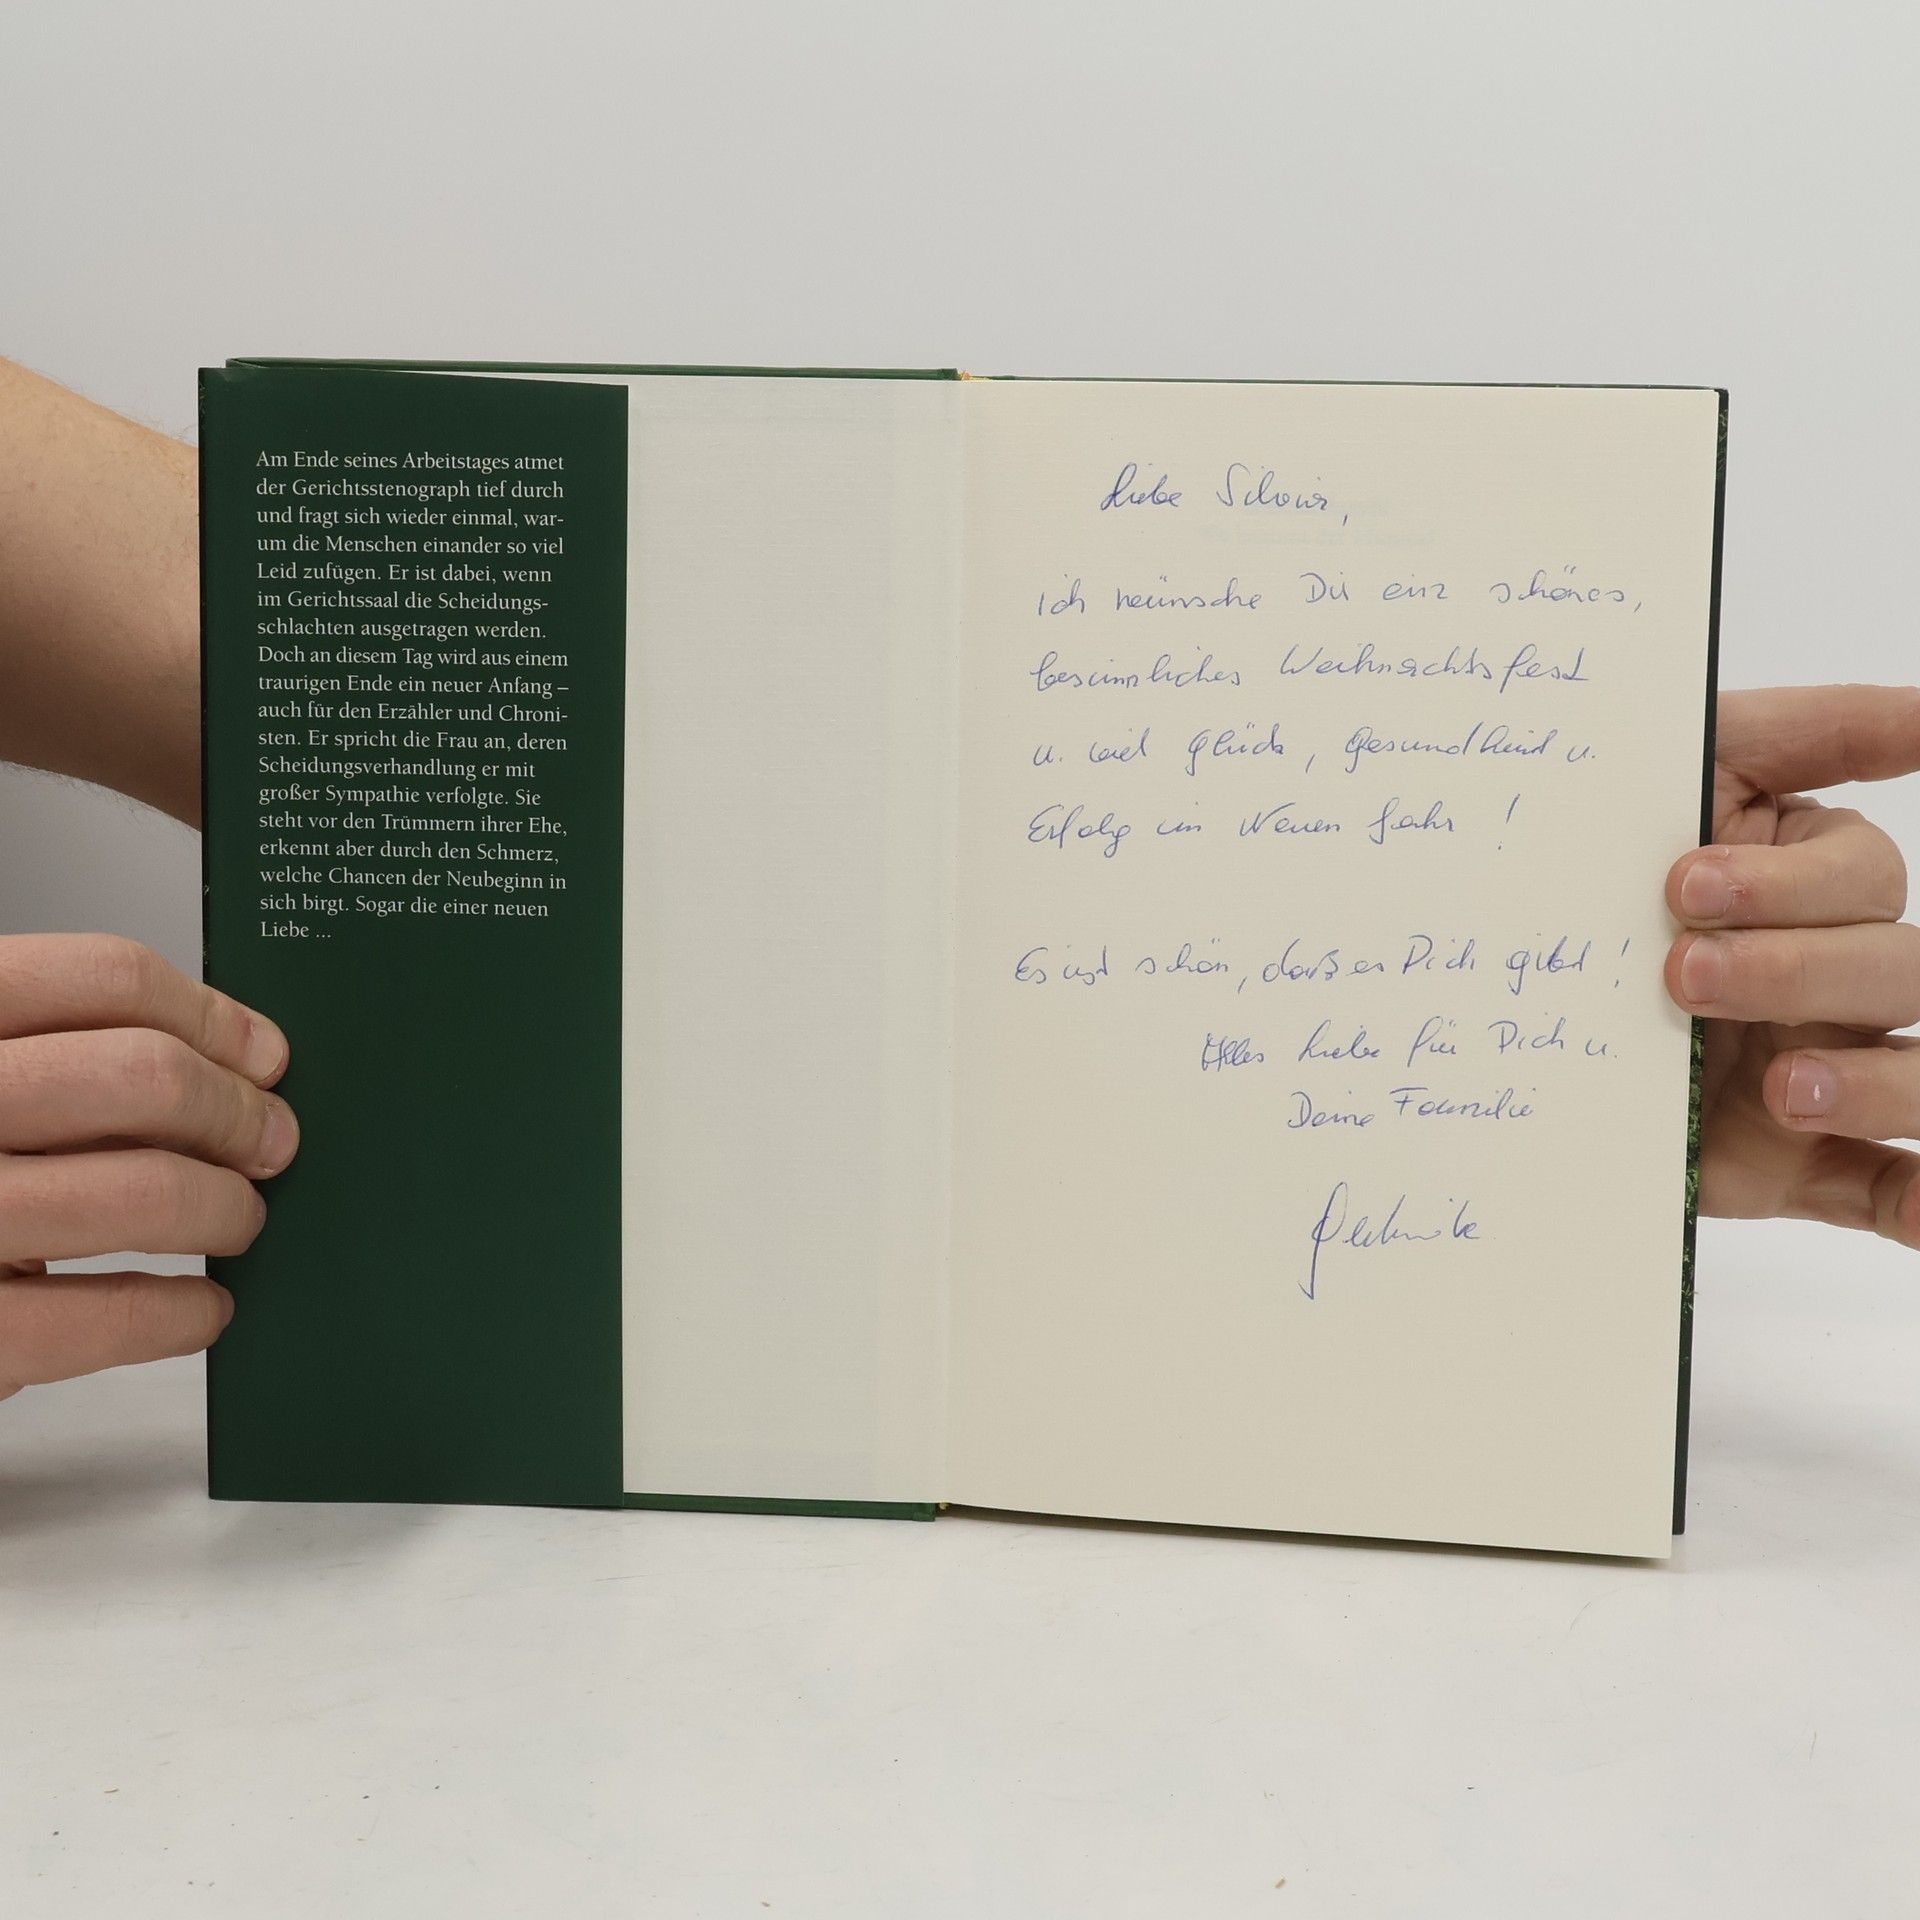 Am Ende seines Arbeitstages atmet
der Gerichtsstenograph tief durch
und fragt sich wieder einmal, war-
um die Menschen einander so viel
Leid zufügen. Er ist dabei, wenn
im Gerichtssaal die Scheidungs-
schlachten ausgetragen werden.
Doch an diesem Tag wird aus einem
traurigen Ende ein neuer Anfang –
auch für den Erzähler und Chroni-
sten. Er spricht die Frau an, deren
Scheidungsverhandlung er mit
großer Sympathie verfolgte. Sie
steht vor den Trümmern ihrer Ehe,
erkennt aber durch den Schmerz,
welche Chancen der Neubeginn in
sich birgt. Sogar die einer neuen
Liebe ...
Liebe Silvia,
ich wünsche Dir ein schönes,
besinnliches Weihnachtsfest
u. viel Glück, Gesundheit u.
Erfolg im Neuen Jahr!
Es ist schön, daß es Dich gibt!
Alles Liebe für Dich u.
Deine Familie